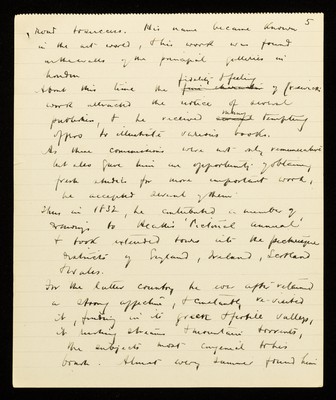 5
road to success. His name became known
in the art world, & his work was found
on the walls of the principal galleries in
London
About this time the fidelity & feeling of
work attracted the notice of several
publishers, & he received many tempting
offers to illustrate various books.
As these commissions were not only remunerative
but also gave him an opportunity of obtaining
fresh studies for more important work,
he accepted several of them.
Thus in 1832, he contributed a number of
drawings to Heath's 'Pictorial Annual'
& took extended tours into the picturesque
districts of England, Ireland, Scotland
& Wales.
For the latter country he ever after retained
a strong affection, & constantly re-visited
it, finding in its green & fertile valleys,
it rushing streams & mountain torrents,
the subjects most congenial to his
brush. Almost every summer found him